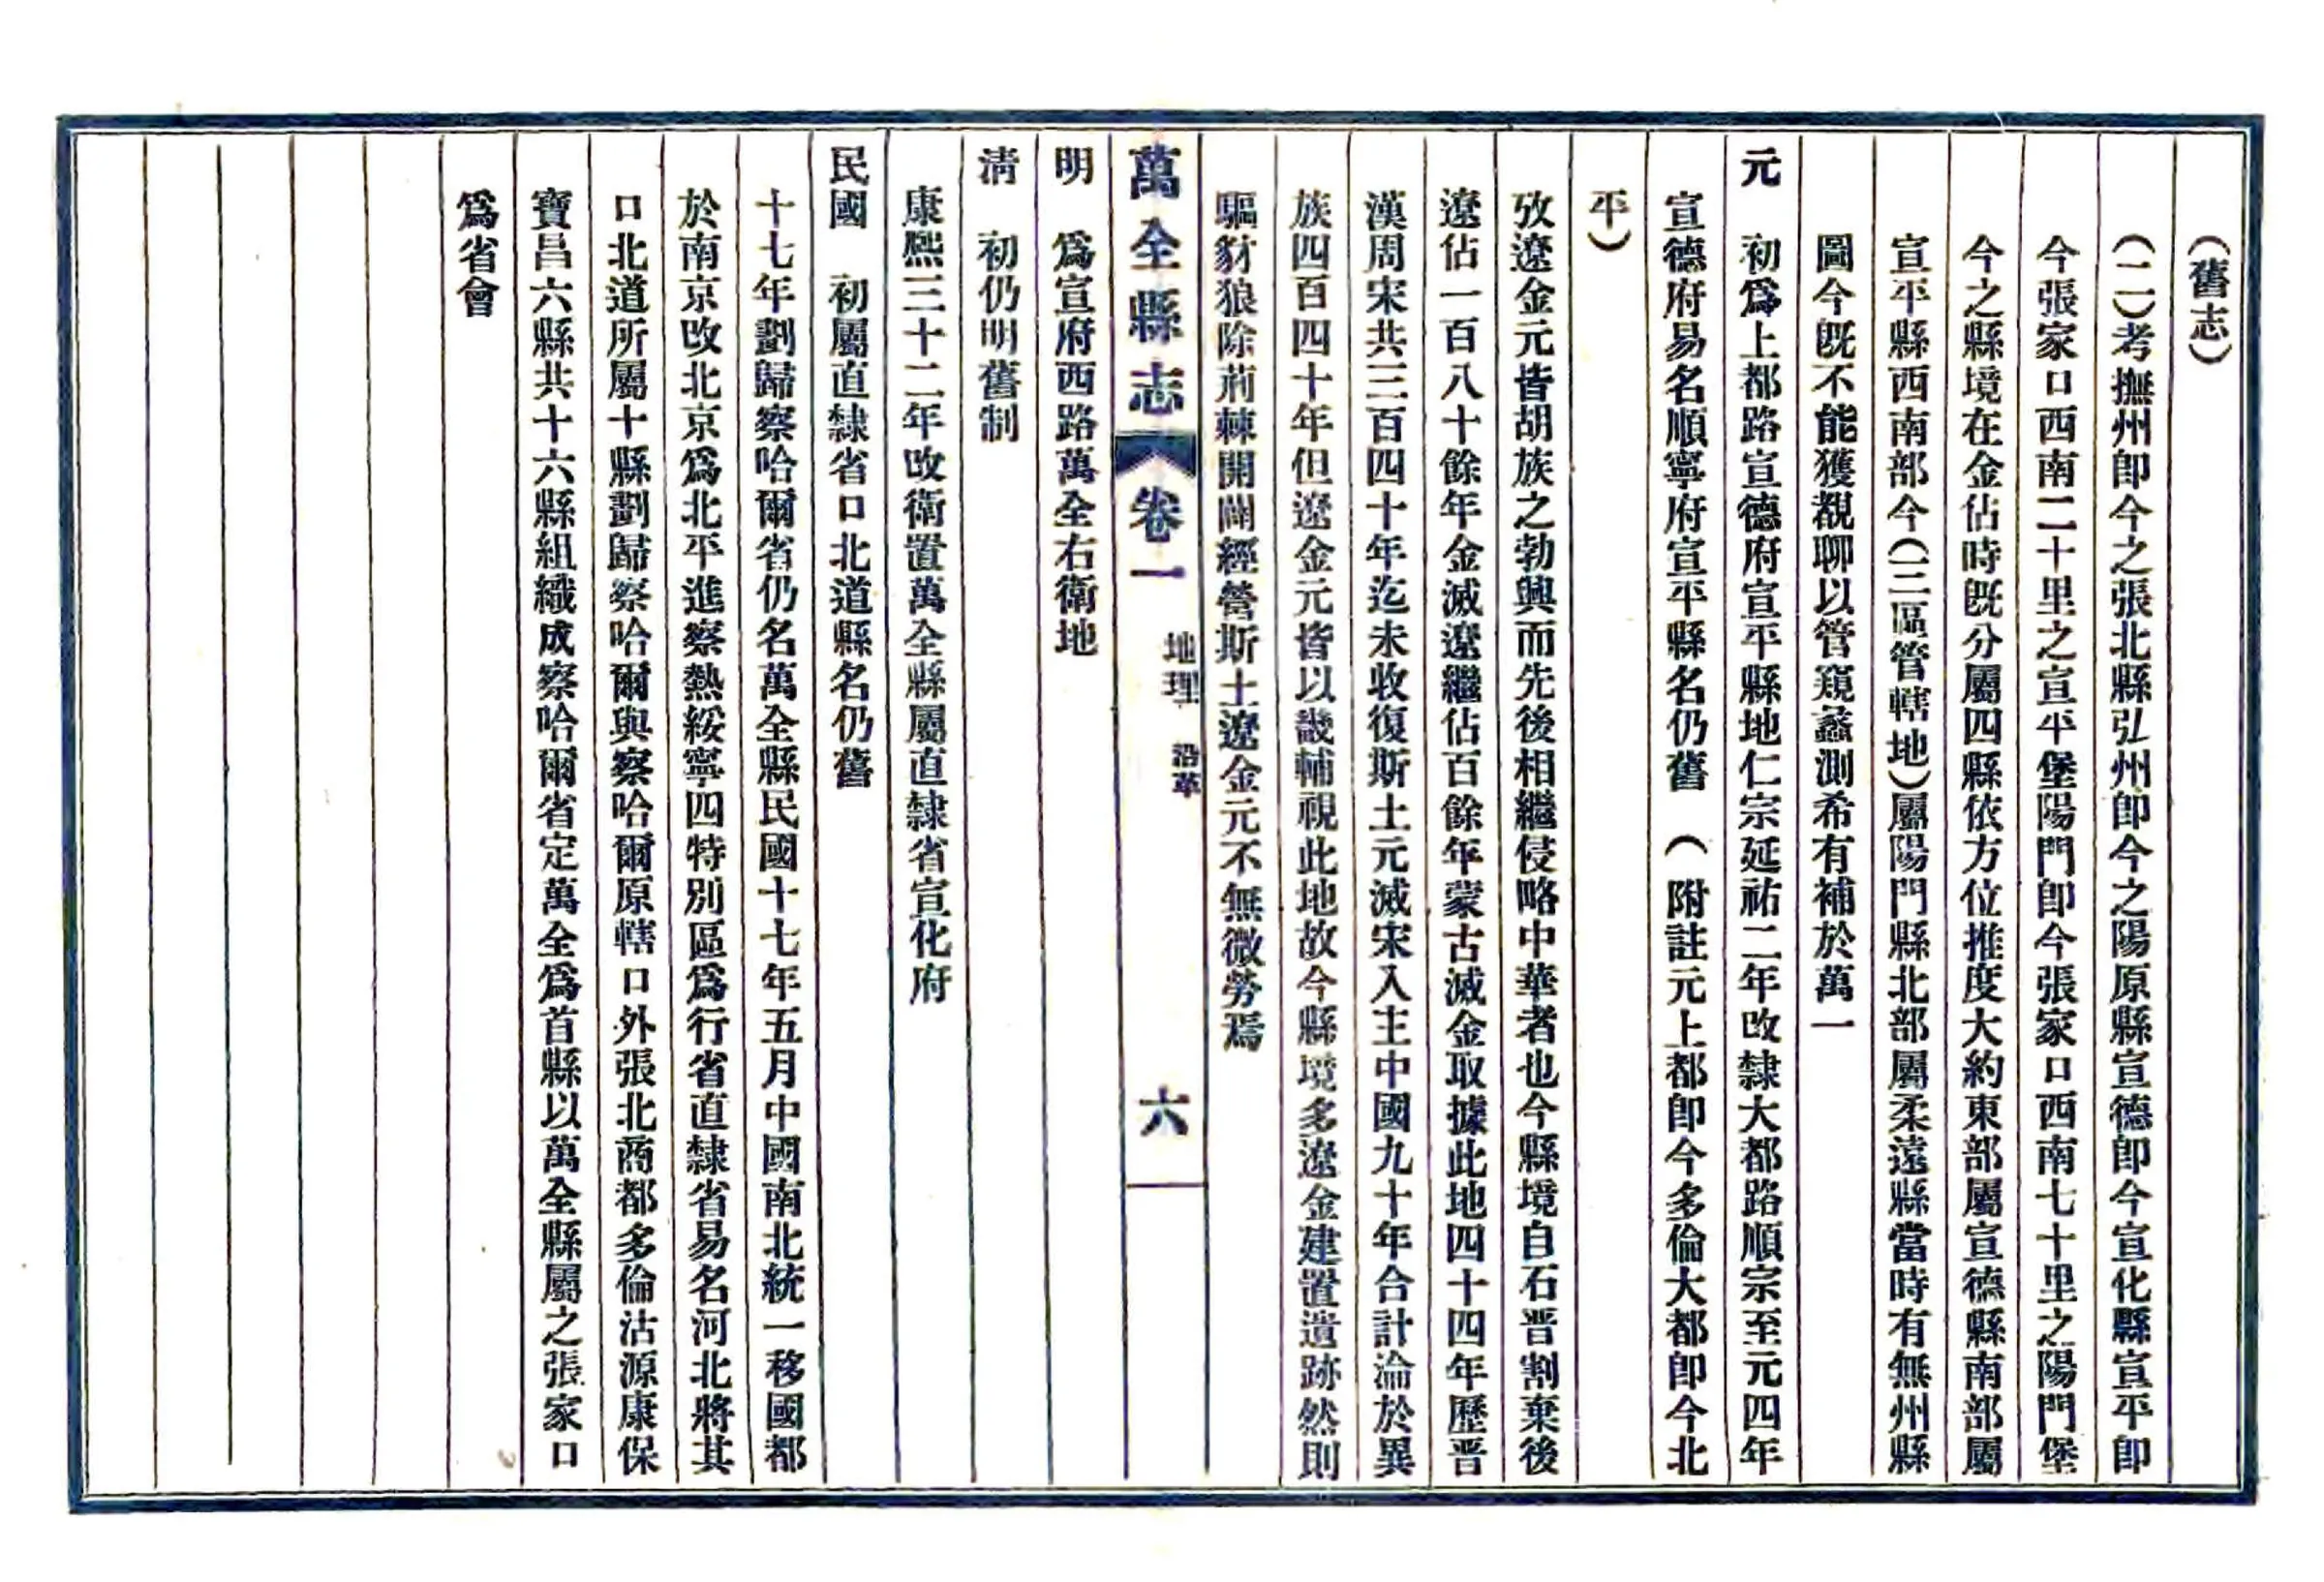 （舊志）
（二）考撫州卽今之張北縣弘州卽今之陽原縣宣德卽今宣化縣宣平卽
今張家口西南二十里之宣平堡陽門卽今張家口西南七十里之陽門堡
今之縣境在金佔時旣分屬四縣依方位推度大約東部屬宣德縣南部屬
宣平縣西南部今（三區管轄地）屬陽門縣北部屬柔遠縣當時有無州縣
圖今旣不能獲覩聊以管窺蠡測希有補於萬一
元　初爲上都路宣德府宣平縣地仁宗延祐二年改隸大都路順宗至元四年
宣德府易名順寧府宣平縣名仍舊　（附註元上都卽今多倫大都卽今北
平）
攷遼金元皆胡族之勃興而先後相繼侵略中華者也今縣境自石晋割棄後
遼佔一百八十餘年金滅遼繼佔百餘年蒙古滅金取據此地四十四年歷晋
漢周宋共三百四十年迄未收復斯土元滅宋入主中國九十年合計淪於異
族四百四十年但遼金元皆以畿輔視此地故今縣境多遼金建置遺跡然則
驅豺狼除荊棘開闢經營斯土遼金元不無微勞焉
萬全縣志　卷一　地理　沿革　六
明　爲宣府西路萬全右衛地
清　初仍明舊制
康熙三十二年改衛置萬全縣屬直隸省宣化府
民國　初屬直隸省口北道縣名仍舊
十七年劃歸察哈爾省仍名萬全縣民國十七年五月中國南北統一移國都
於南京改北京爲北平進察熱綏寧四特別區爲行省直隸省易名河北將其
口北道所屬十縣劃歸察哈爾與察哈爾原轄口外張北商都多倫沽源康保
寶昌六縣共十六縣組織成察哈爾省定萬全爲首縣以萬全縣屬之張家口
爲省會